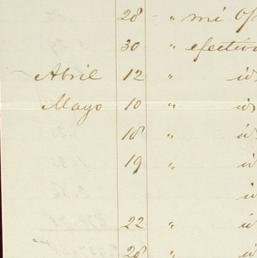 28 " mi
30 " efectiv
Abril 12 " id
Mayo 10 " id
18 " id
19 " id
id
22 " id
28 " id